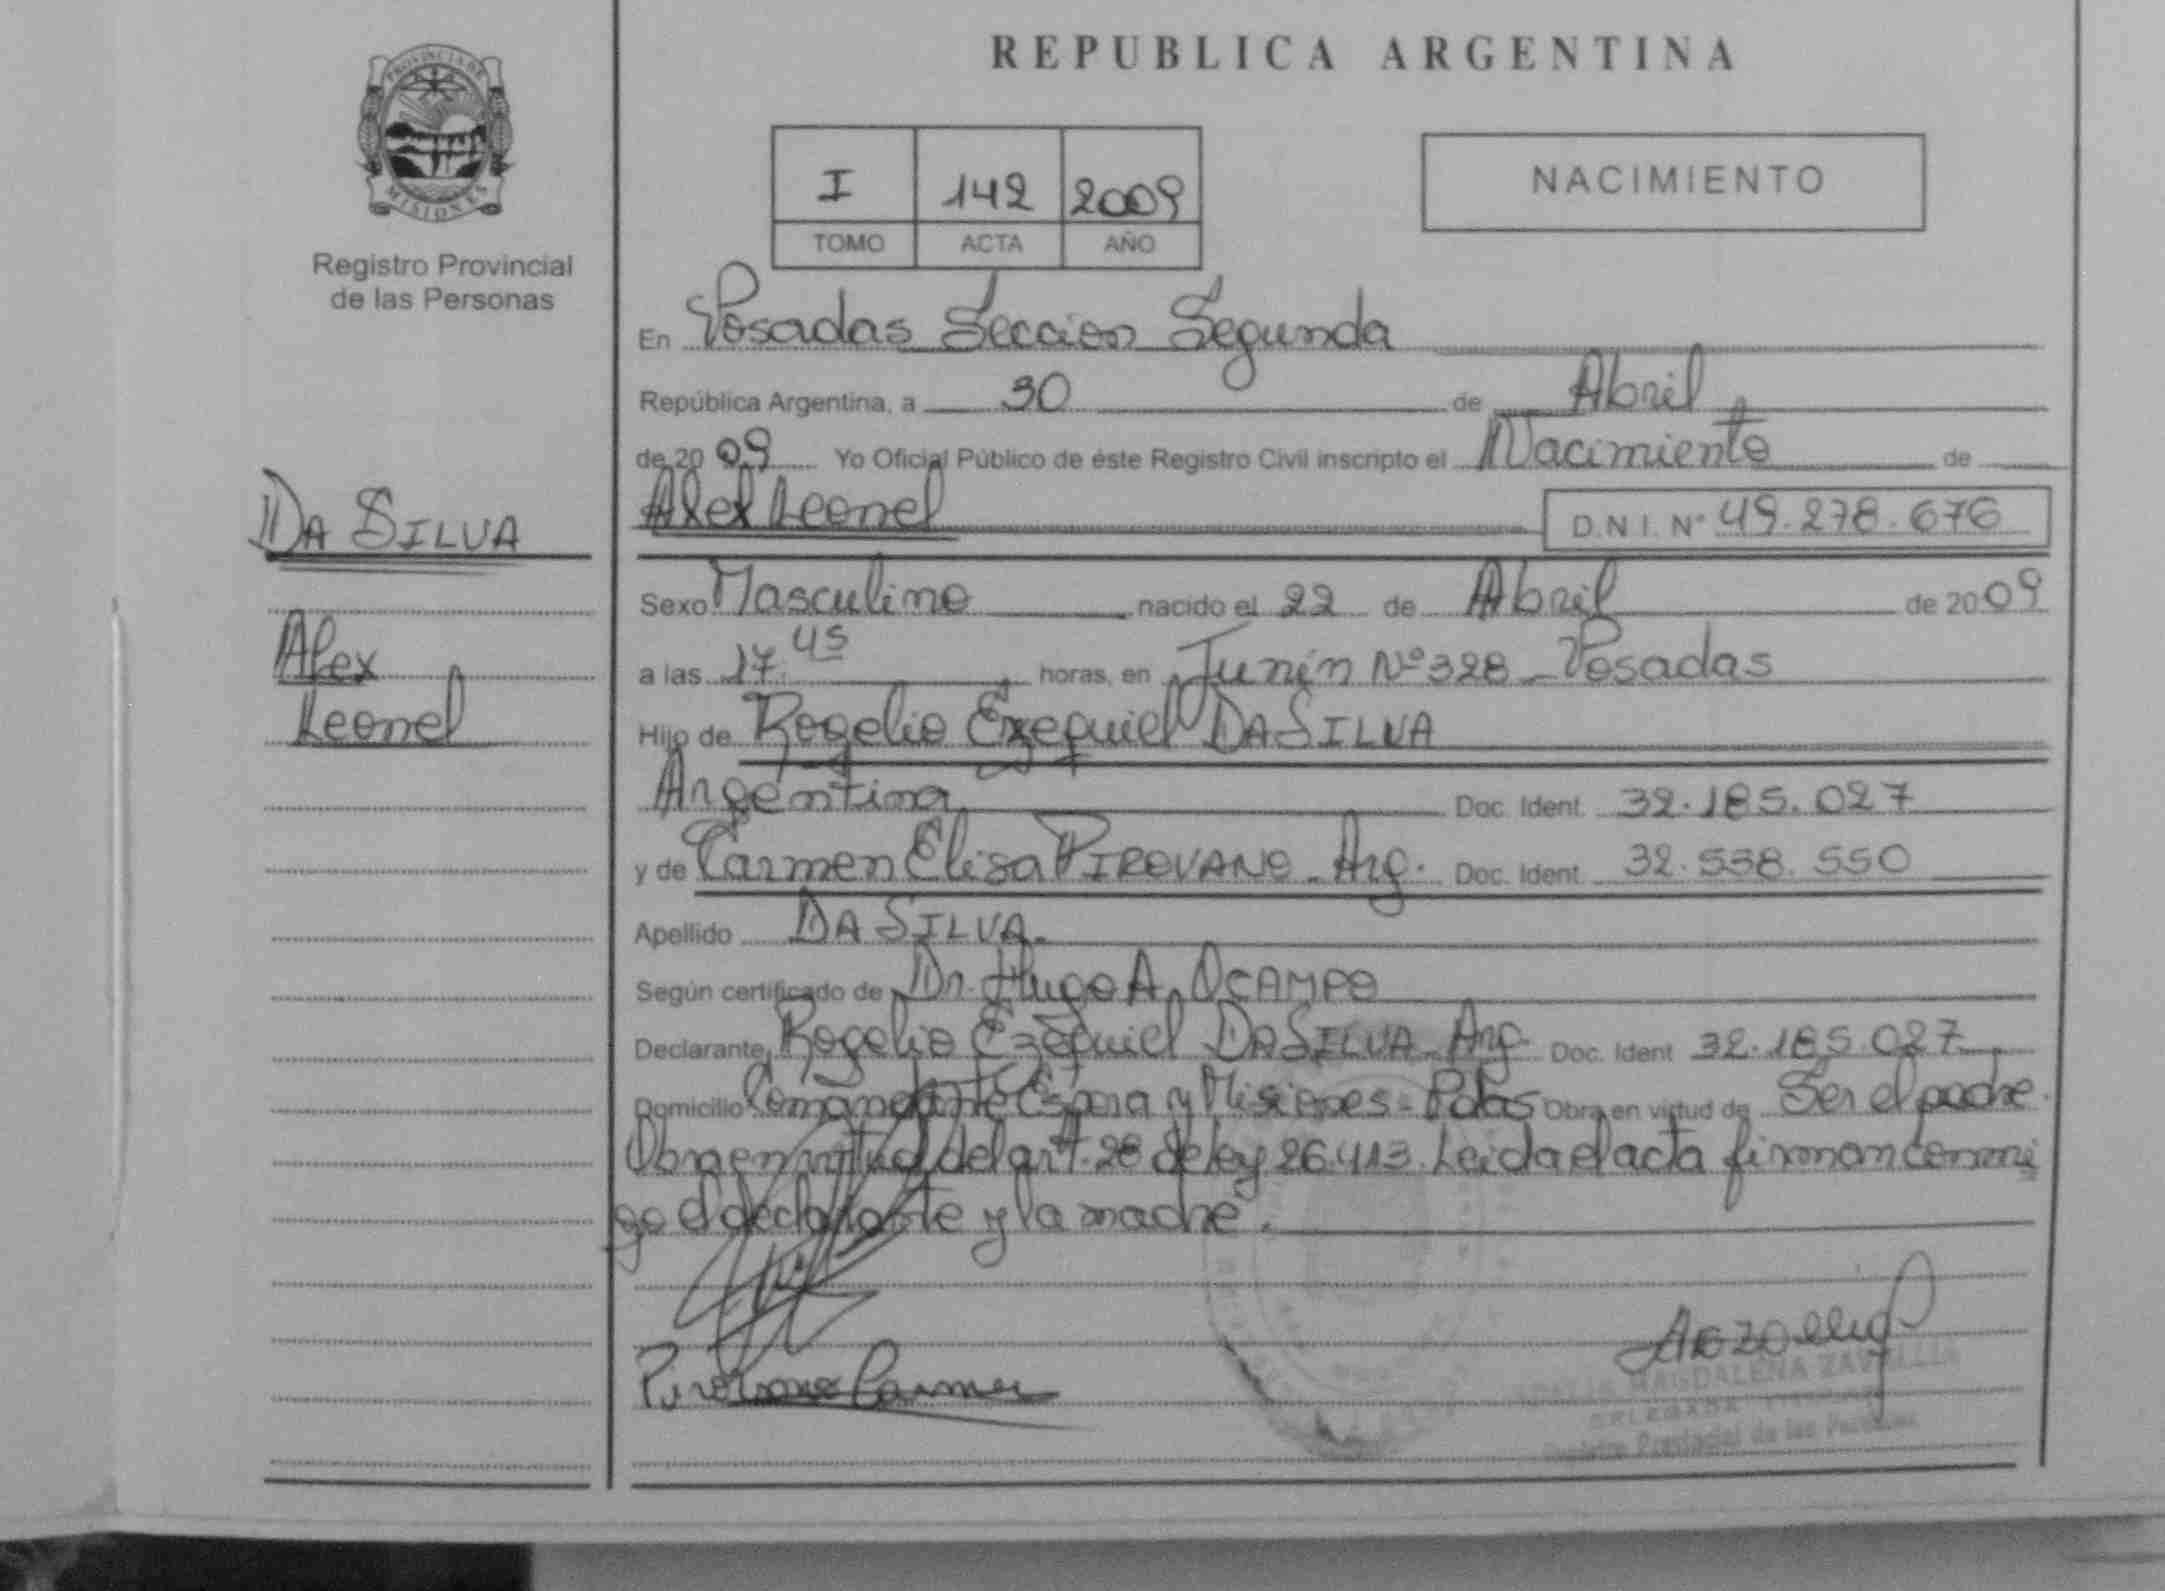 REPUBLICA ARGENTINA
PROVINCIA DE
MISIONES
Registro Provincial
de las Personas
I 142 2009
TOMO ACTA AÑO
NACIMIENTO
En Posadas Seccion Segunda
República Argentina, a 30 de Abril
de 20 09 Yo Oficial Público de éste Registro Civil inscripto el Nacimiento de
Alex Leonel D.N.I. Nº 49.278.676
DA SILVA
Alex
Leonel
Sexo Masculino nacido el 22 de Abril de 20 09
a las 17.45 horas, en Junín Nº 328 - Posadas
Hijo de Rogelio Ezequiel DA SILVA
Argentina Doc. Ident. 32.185.027
y de Carmen Elisa PIROVANO - Arg. Doc. Ident. 32.538.550
Apellido DA SILVA.
Según certificado de Dr. Hugo A. OCAMPO
Declarante Rogelio Ezequiel DA SILVA - Arg. Doc. Ident 32.185.027
Domicilio Comandante Espora y Misiones - Pdas Obra en virtud de Ser el padre.
Obra en virtud del art. 28 de ley 26.413. Leida el acta firman conmi
go el declarante y la madre.
Pirovano Carmen
MAGDALENA
Registro Provincial de las Personas